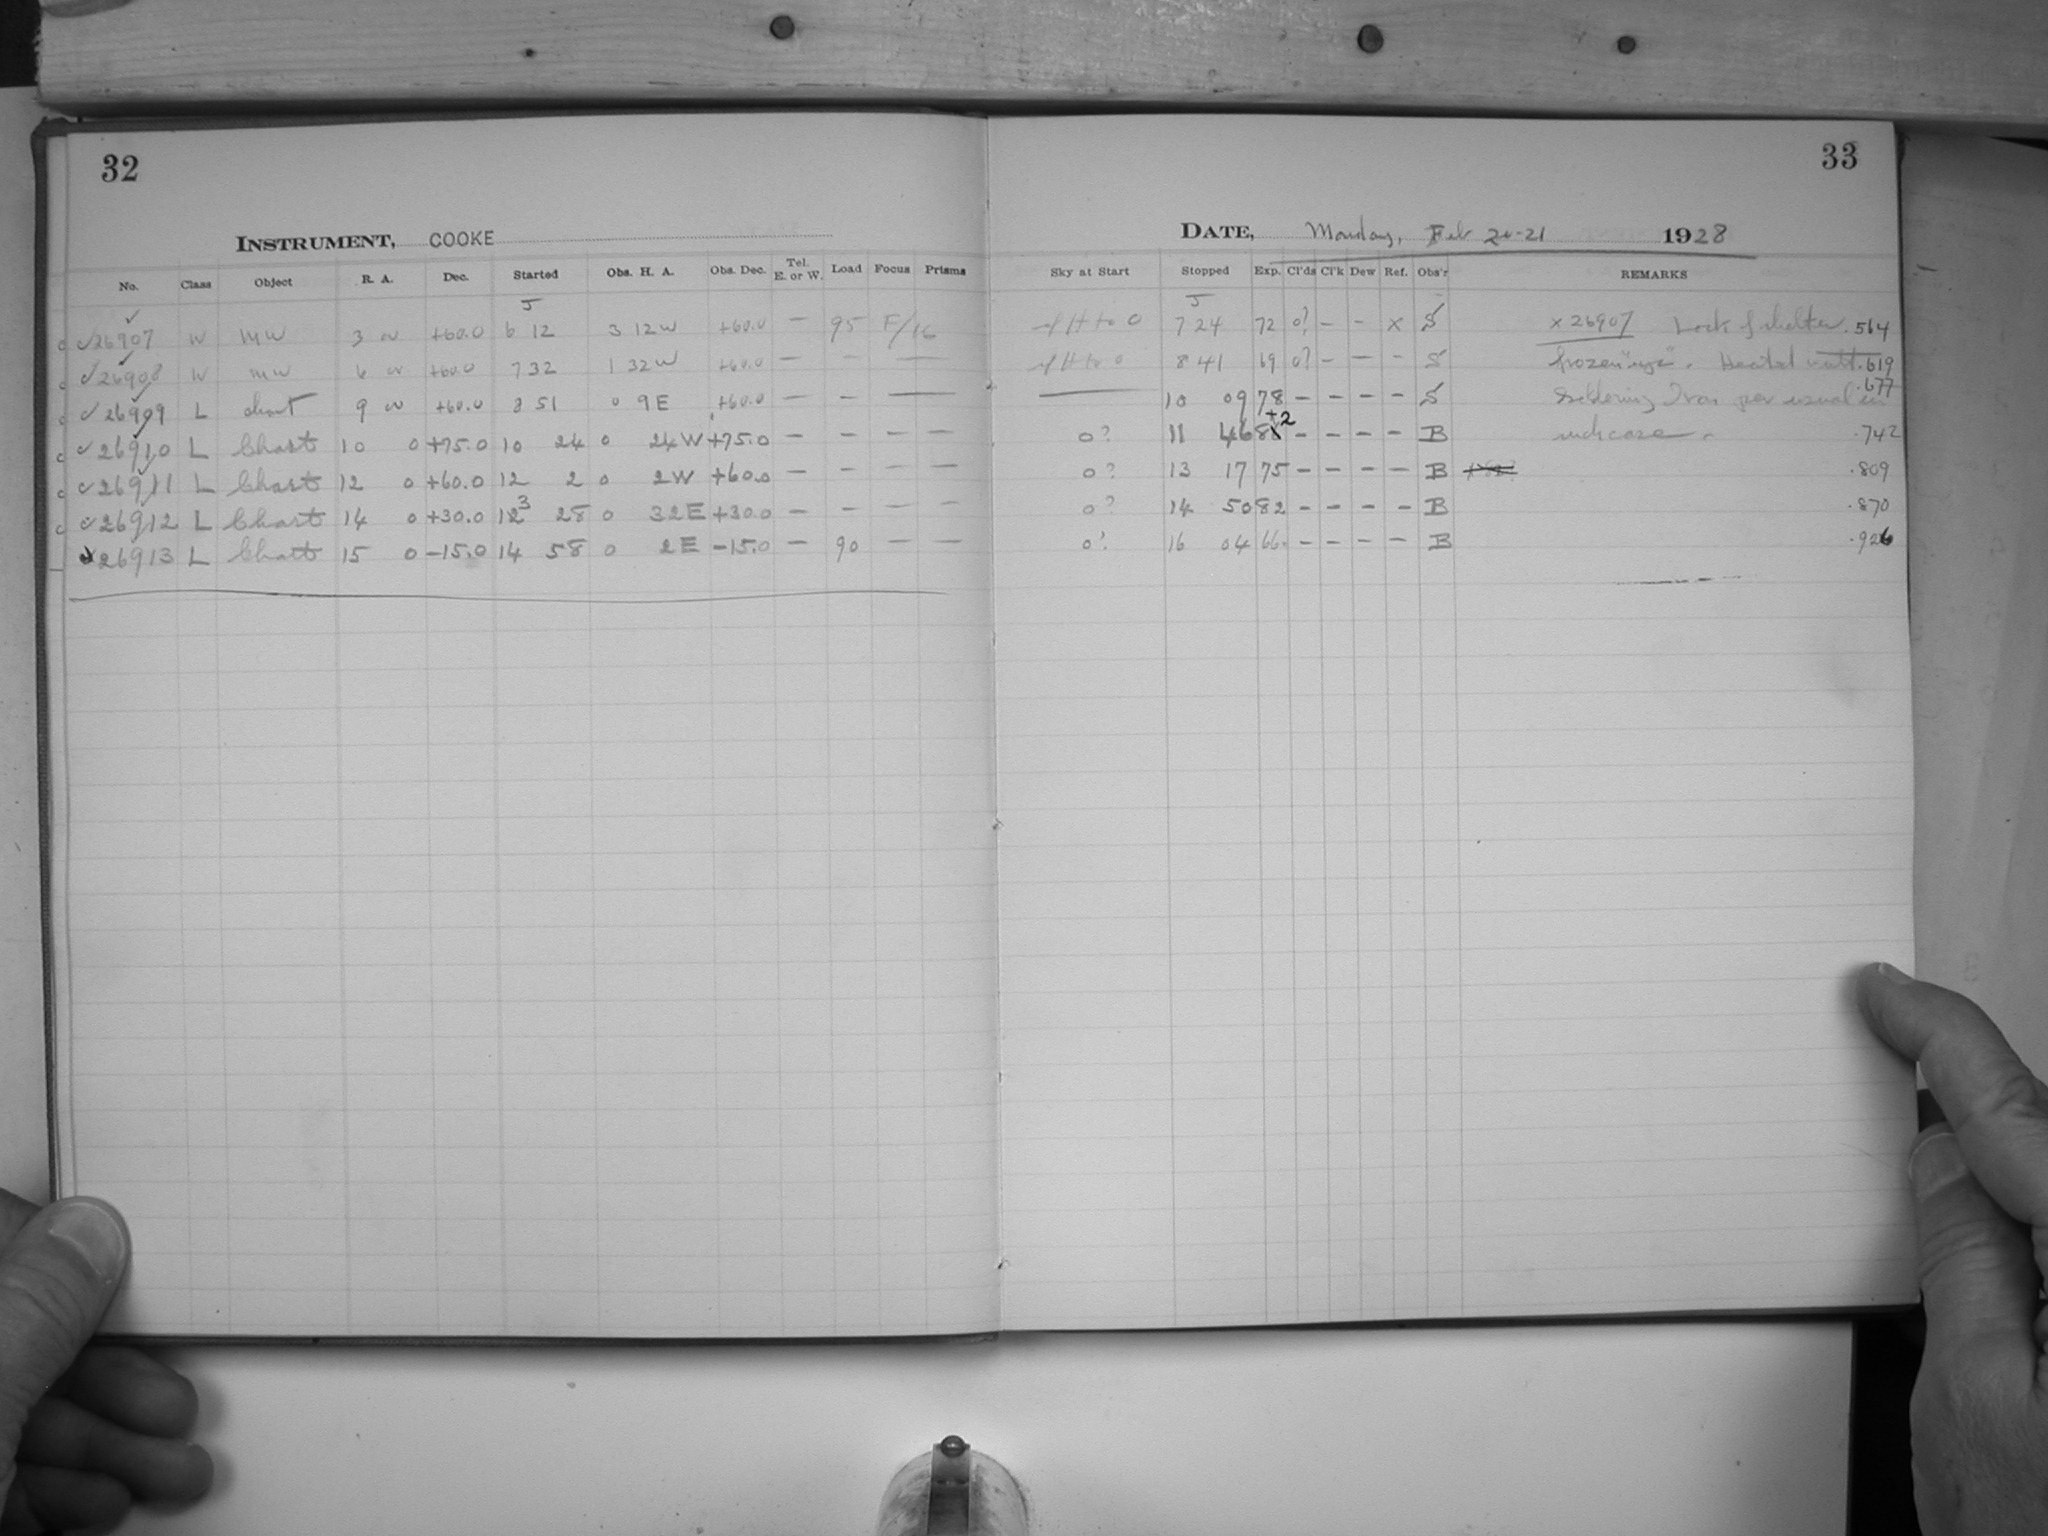 32
INSTRUMENT, COOKE
No. Class Object R. A. Dec. Started Obs. H. A. Obs. Dec. Tel. E. or W. Load Focus Prisms
J
✓26907 W MW 3 00 +60.0 6 12 3 12W +60.0 — 95 F/16
✓26908 W MW 6 00 +60.0 7 32 1 32W +60.0 — — —
✓26909 L chart 9 00 +60.0 8 51 0 9E +60.0 — — —
✓26910 L Chart 10 0 +75.0 10 24 0 24W +75.0 — — — —
✓26911 L Chart 12 0 +60.0 12 2 0 2W +60.0 — — — —
✓26912 L Chart 14 0 +30.0 13 28 0 32E +30.0 — — — —
26913 L Chart 15 0 −15.0 14 58 0 2E −15.0 — 90 — —
33
DATE, Monday, Feb 20-21 1928
Sky at Start Stopped Exp. Cl'ds Cl'k Dew Ref. Obs'r REMARKS
J
7 24 72 0? — — x S x 26907 Lock of shelter .564
8 41 69 0? — — — S frozen. Heated with .619
10 09 78 — — — — S Soldering Iron per usual in .677
0? 11 46 82 — — — — B such case. .742
0? 13 17 75 — — — — B .809
0? 14 50 82 — — — — B .870
0? 16 04 66 — — — — B .926